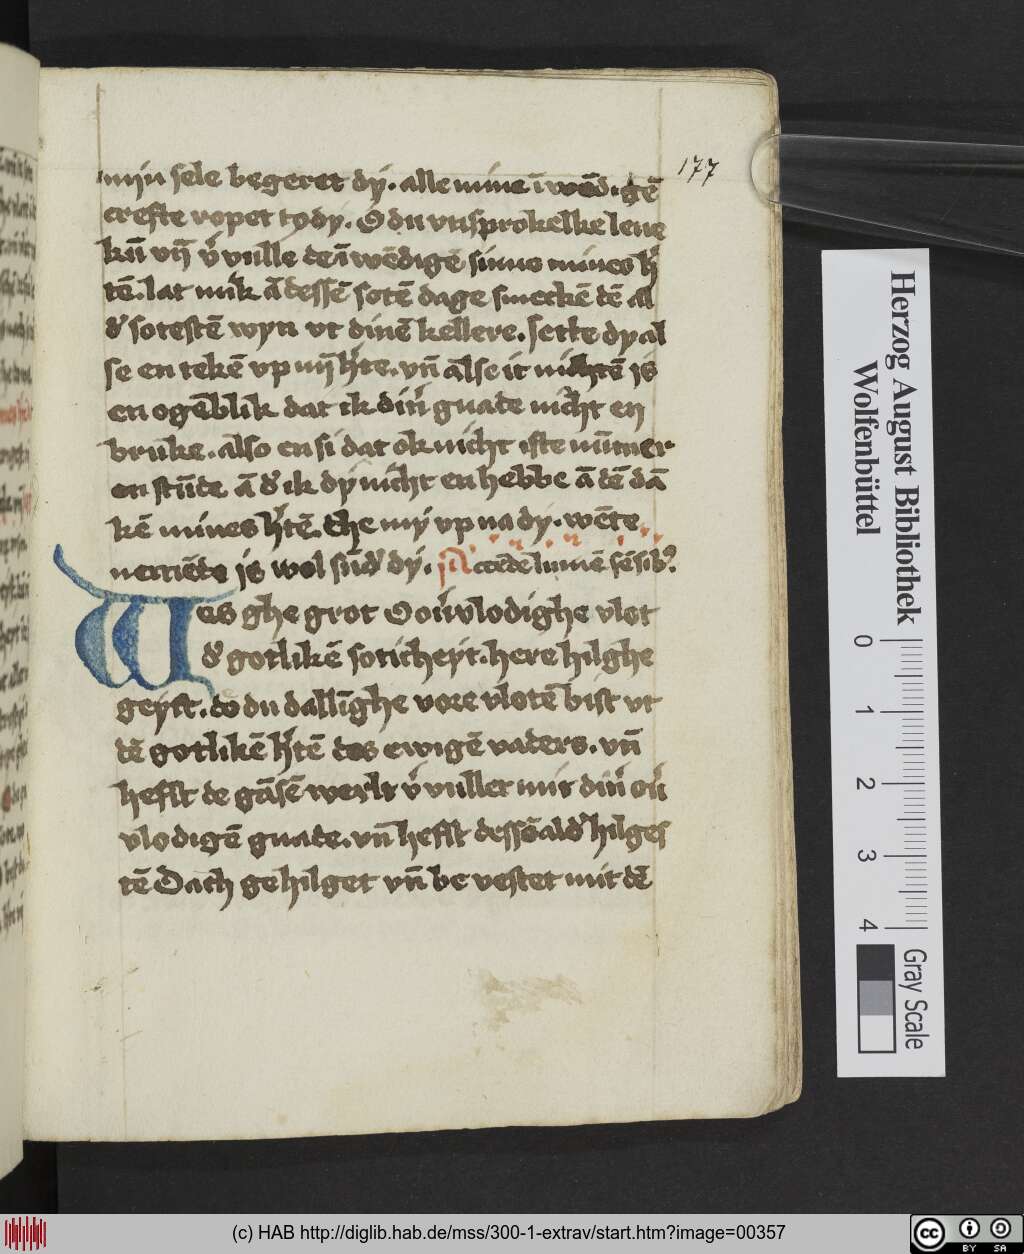 177
mijn sele begeret dy. alle mine ī wēdigē
crefte ropet to dy. O du vnsprokelke leue
kū vn̄ v'vulle de ī wēdigē sinne mines h'
tē. lat mik ā dessē sotē dage smeckē dē al
d' sotestē wyn vt dinē kellere. sette dy al
se en tekē vp mī h'te. vn̄ alse it nichtē is
en ogēblik dat ik din' gnade nicht en
bruke. also en si dat ok nicht iste nūmer
en stūde ā d' ik dy nicht en hebbe ā dē dā
kē mines h'tē. the my vp na dy. wēte
verriēde is wol sūd' dy. Accēde lumē sēsib9.
Wes ghe grot O ou'vlodighe vlot
d' gotlikē soticheyt. here hilghe
geyst. do du dallīghe vore vlotē bist vt
dē gotlikē h'tē des ewigē vaders. vn̄
hefst de gāsē werlt v'vullet mit din' ou'
vlodigē gnade. vn̄ hefst dessē ald' hilges
tē Dach gehilget vn̄ be vestet mit dē
Herzog August Bibliothek
Wolfenbüttel
0 1 2 3 4
Gray Scale
(c) HAB http://diglib.hab.de/mss/300-1-extrav/start.htm?image=00357
cc BY SA